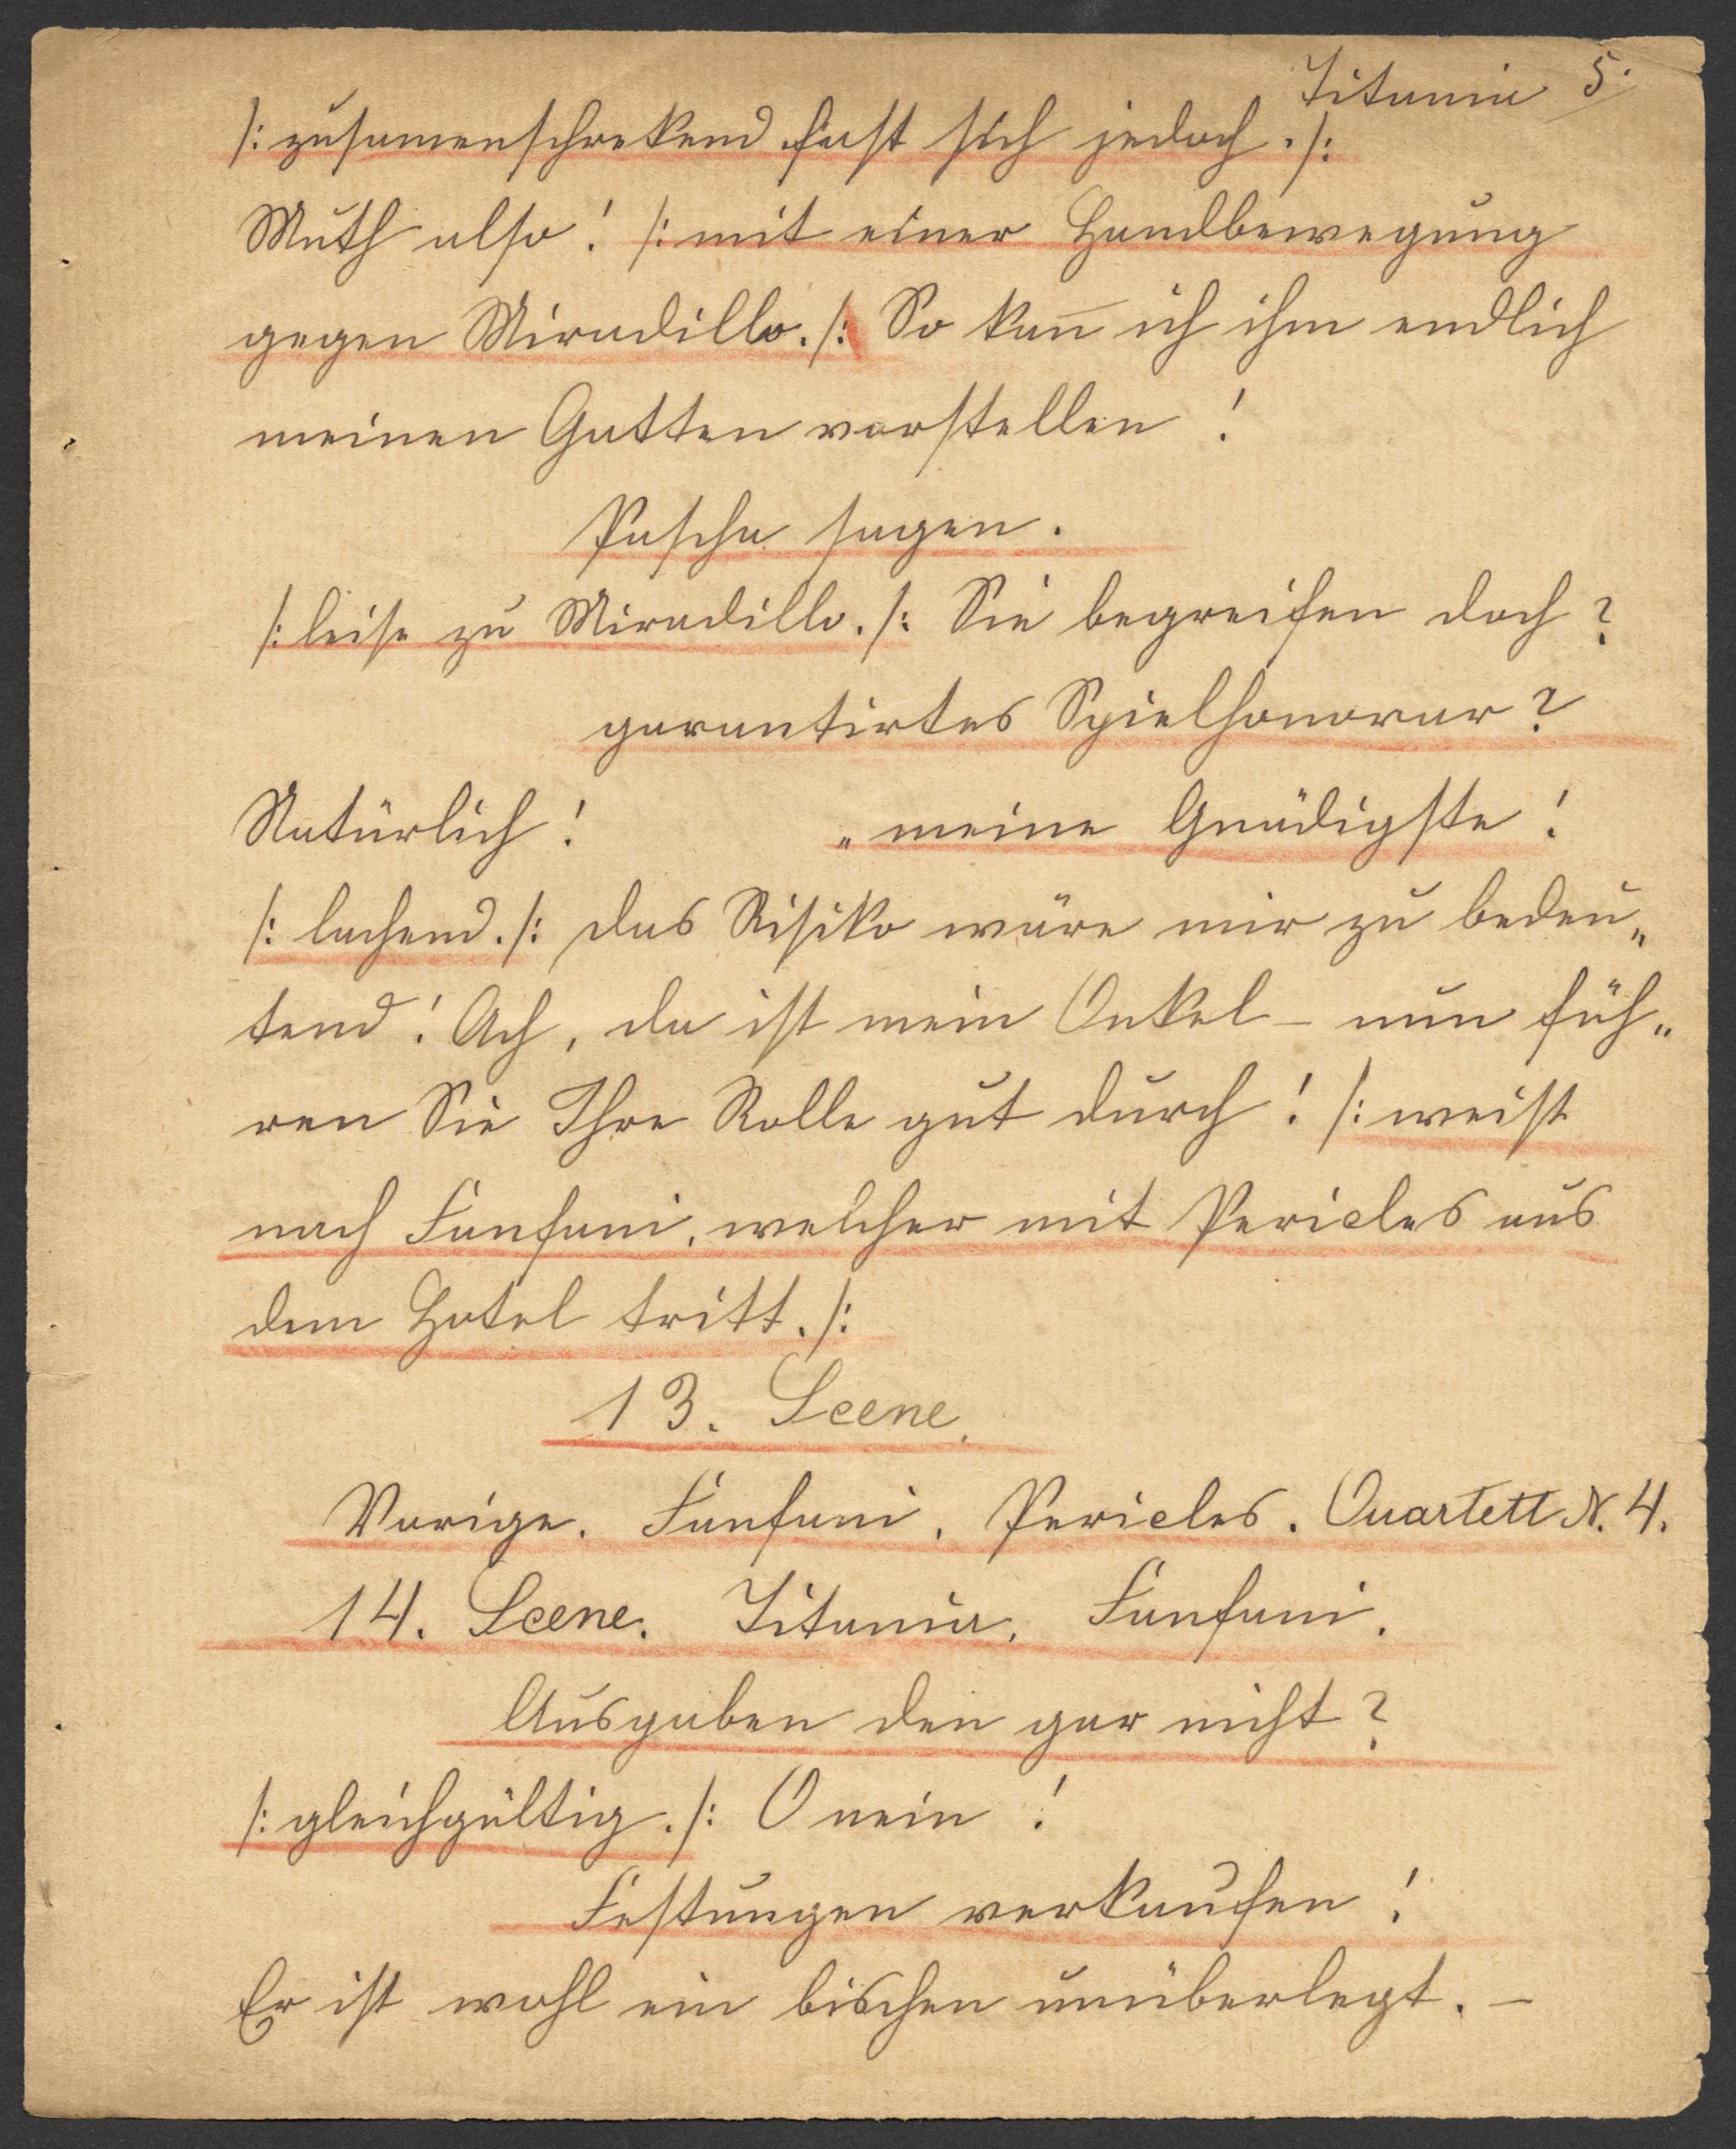 Titania 5.
/: zusamenschrekend fast sich jedoch. /:
Muth also! /: mit einer Handbewegung
gegen Miradillo. /: So kan̅ ich ihm endlich
meinen Gatten vorstellen!
Pascha sagen.
/: leise zu Miradillo. /: Sie begreifen doch?
garantirtes Spielhonorar?
Natürlich! „meine Gnädigste!
/: lachend. /: das Risiko wäre mir zu bedeu„
tend! Ach, da ist mein Onkel – nun füh„
ren Sie Ihre Rolle gut durch! /: weist
nach Fanfani, welcher mit Pericles aus
dem Hotel tritt. /:
13. Scene.
Vorige. Fanfani. Pericles. Quartett N. 4.
14. Scene. Titania. Fanfani.
Ausgaben den gar nicht?
/: gleichgültig. /: O nein!
Festungen verkaufen!
Er ist wohl ein bischen unüberlegt. –